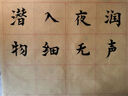 潜入夜润
物细无声